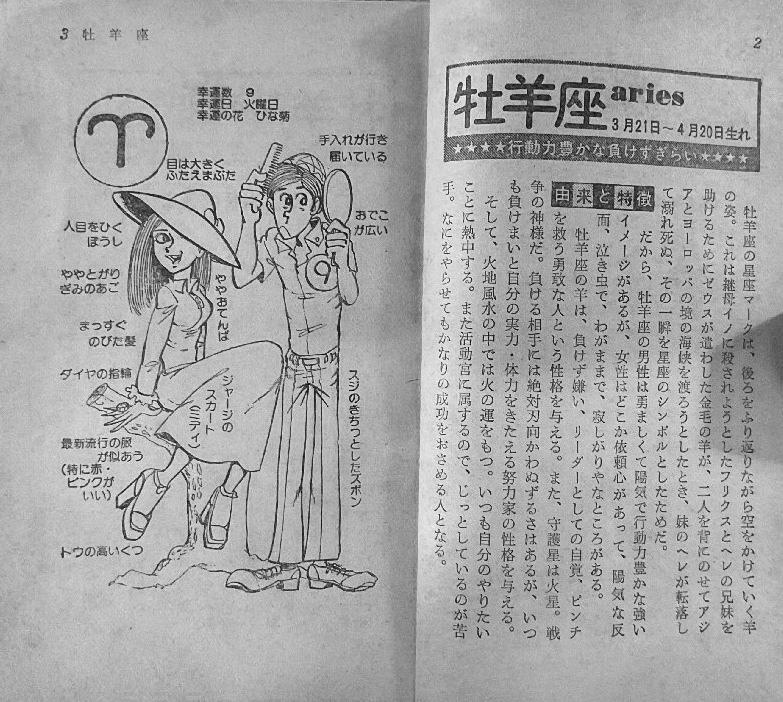 2
牡羊座 aries
3月21日～4月20日生れ
★★★★行動力豊かな負けずぎらい★★★★
由来と特徴
牡羊座の星座マークは、後ろをふり返りながら空をかけていく羊
の姿。これは継母イノに殺されようとしたフリクスとヘレの兄妹を
助けるためにゼウスが遣わした金毛の羊が、二人を背にのせてアジ
アとヨーロッパの境の海峡を渡ろうとしたとき、妹のヘレが転落し
て溺れ死ぬ、その一瞬を星座のシンボルとしたためだ。
だから、牡羊座の男性は勇ましくて陽気で行動力豊かな強い
イメージがあるが、女性はどこか依頼心があって、陽気な反
面、泣き虫で、わがままで、寂しがりやなところがある。
牡羊座の羊は、負けず嫌い、リーダーとしての自覚、ピンチ
を救う勇敢な人という性格を与える。また、守護星は火星。戦
争の神様だ。負ける相手には絶対刃向かわぬずるさはあるが、いつ
も負けまいと自分の実力・体力をきたえる努力家の性格を与える。
そして、火地風水の中では火の運をもつ。いつも自分のやりたい
ことに熱中する。また活動宮に属するので、じっとしているのが苦
手。なにをやらせてもかなりの成功をおさめる人となる。
3 牡羊座
幸運数 9
幸運日 火曜日
幸運の花 ひな菊
手入れが行き
届いている
目は大きく
ふたえまぶた
おでこ
が広い
人目をひく
ぼうし
9
ややとがり
ぎみのあご
ややおてんば
まっすぐ
のびた髪
ダイヤの指輪
ジャージの
スカート
(ミディ)
スジのきちっとしたズボン
最新流行の服
が似あう
(特に赤・
ピンクが
いい)
トウの高いくつ